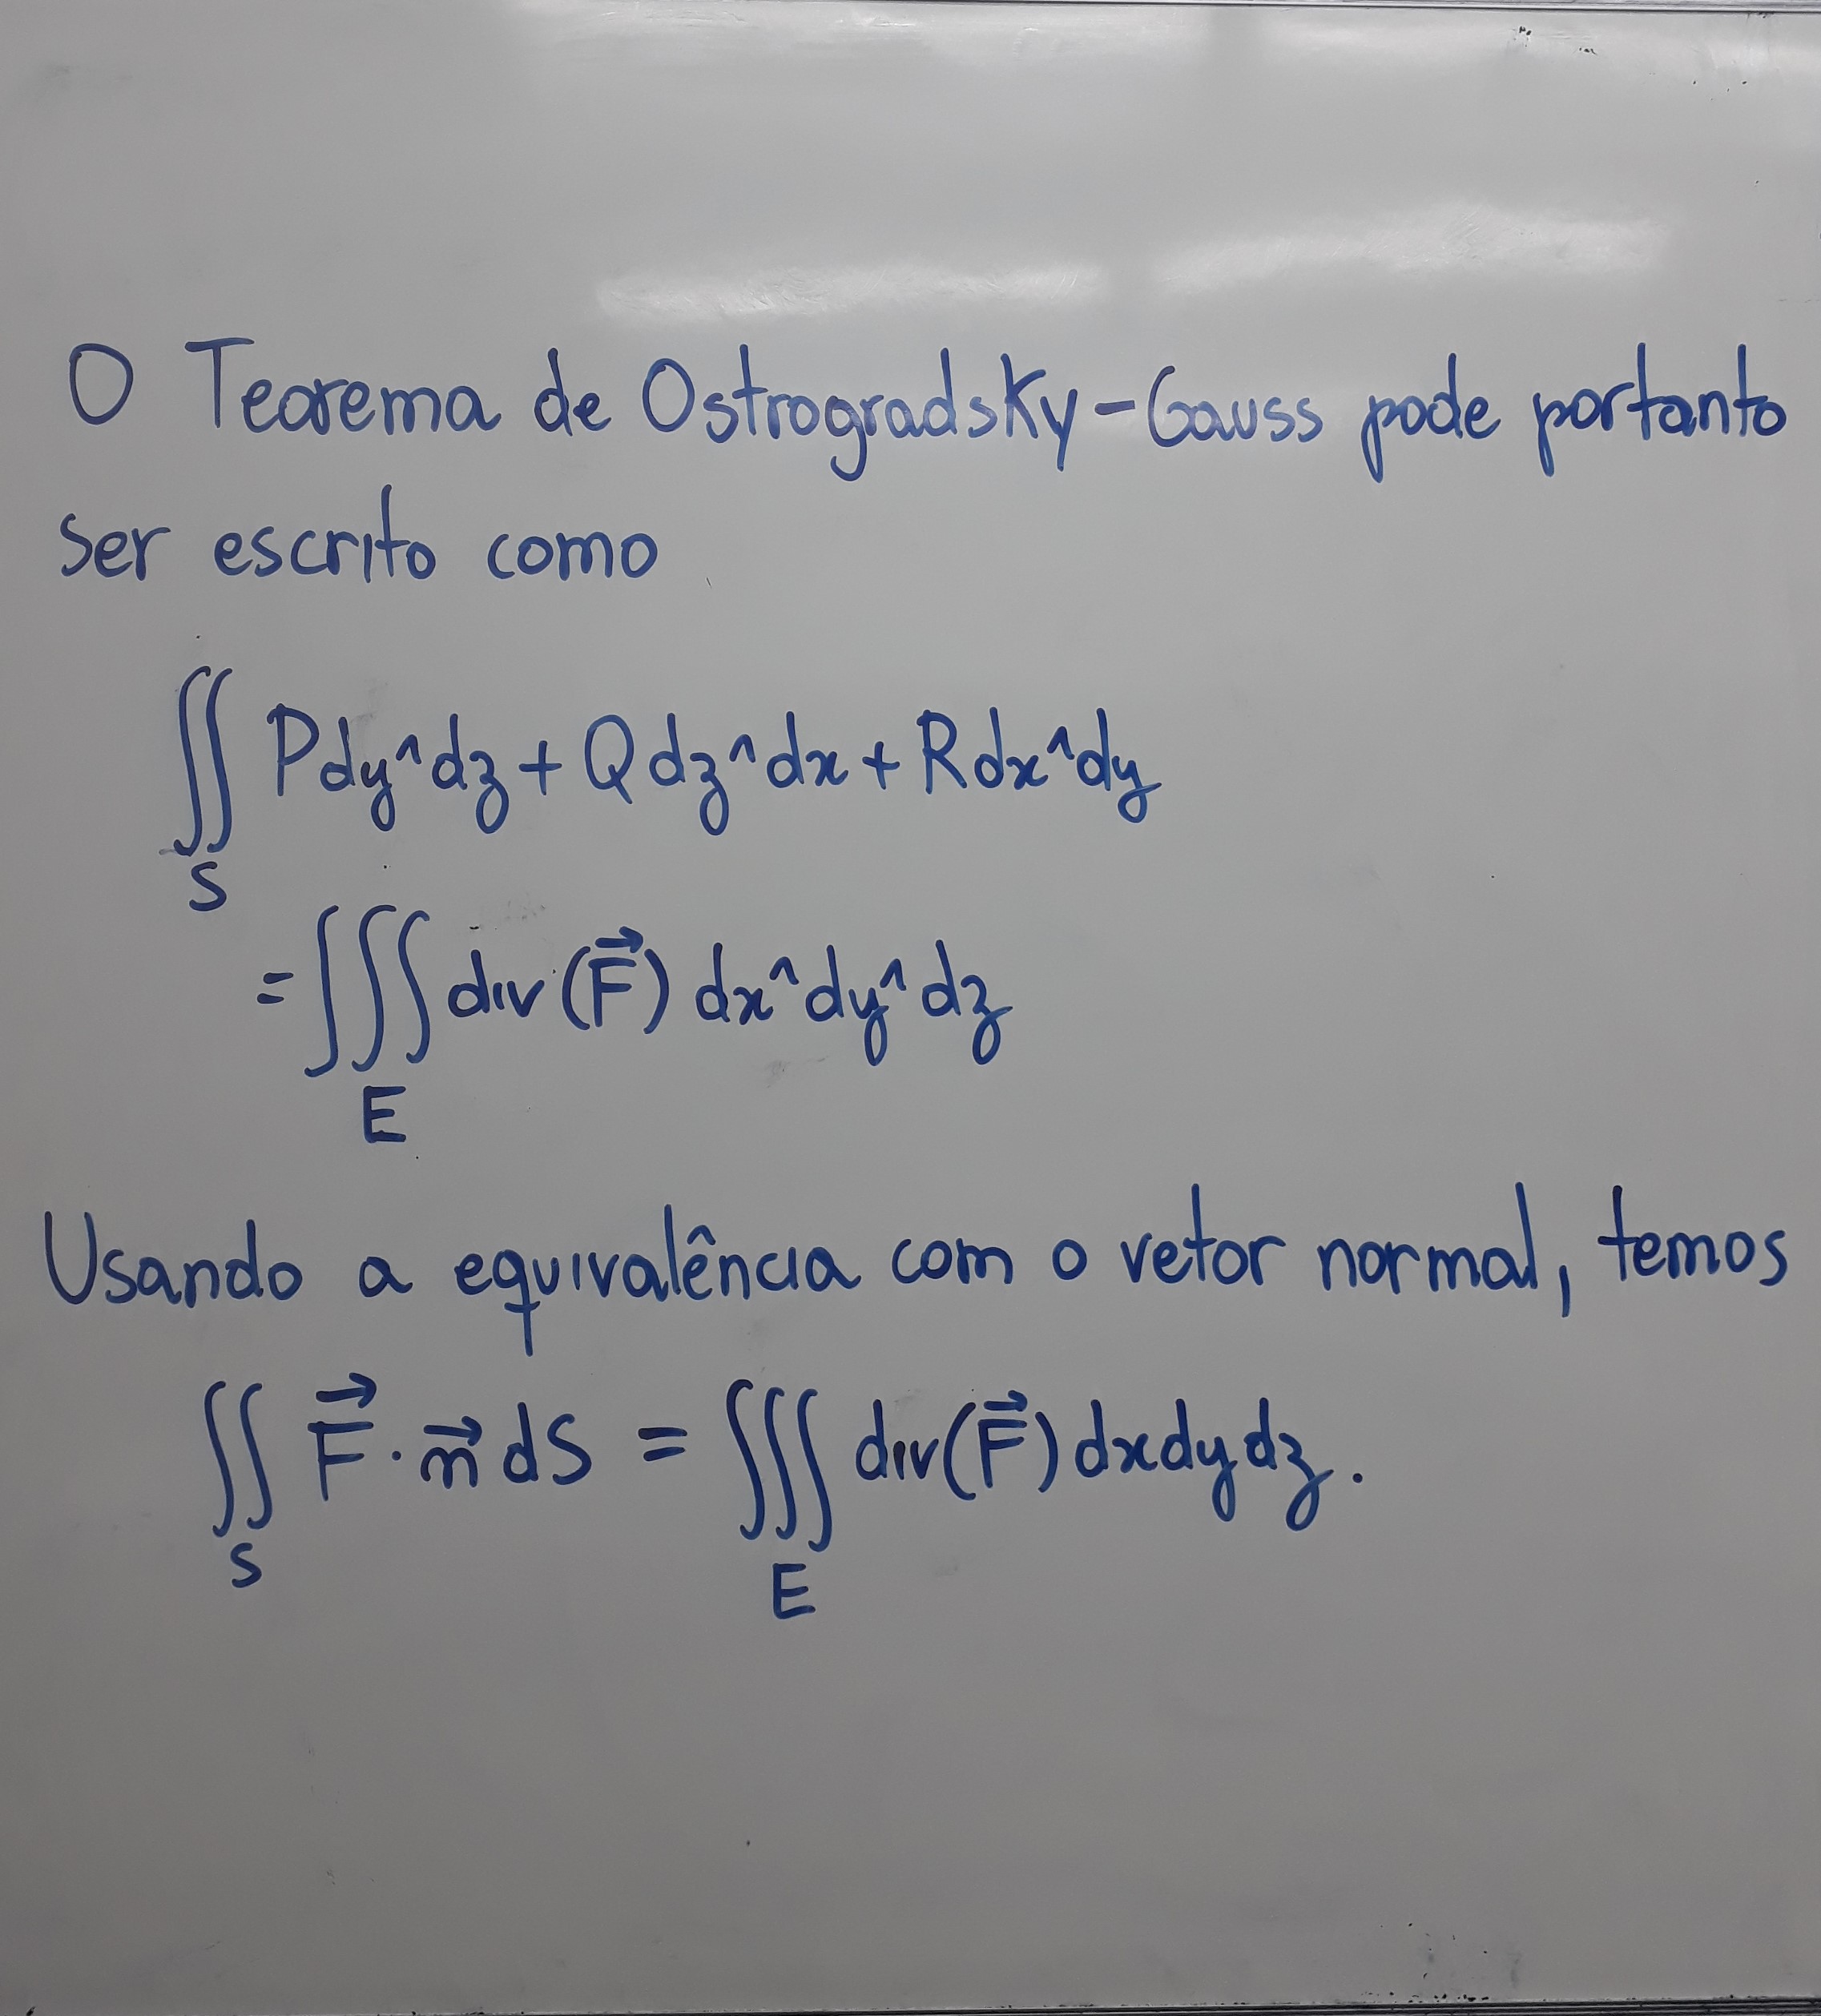 O Teorema de Ostrogradsky-Gauss pode portanto
ser escrito como
∬_S Pdy^dz + Qdz^dx + Rdx^dy
= ∭_E div(F⃗) dx^dy^dz
Usando a equivalência com o vetor normal, temos
∬_S F⃗ · n⃗ dS = ∭_E div(F⃗) dxdydz.